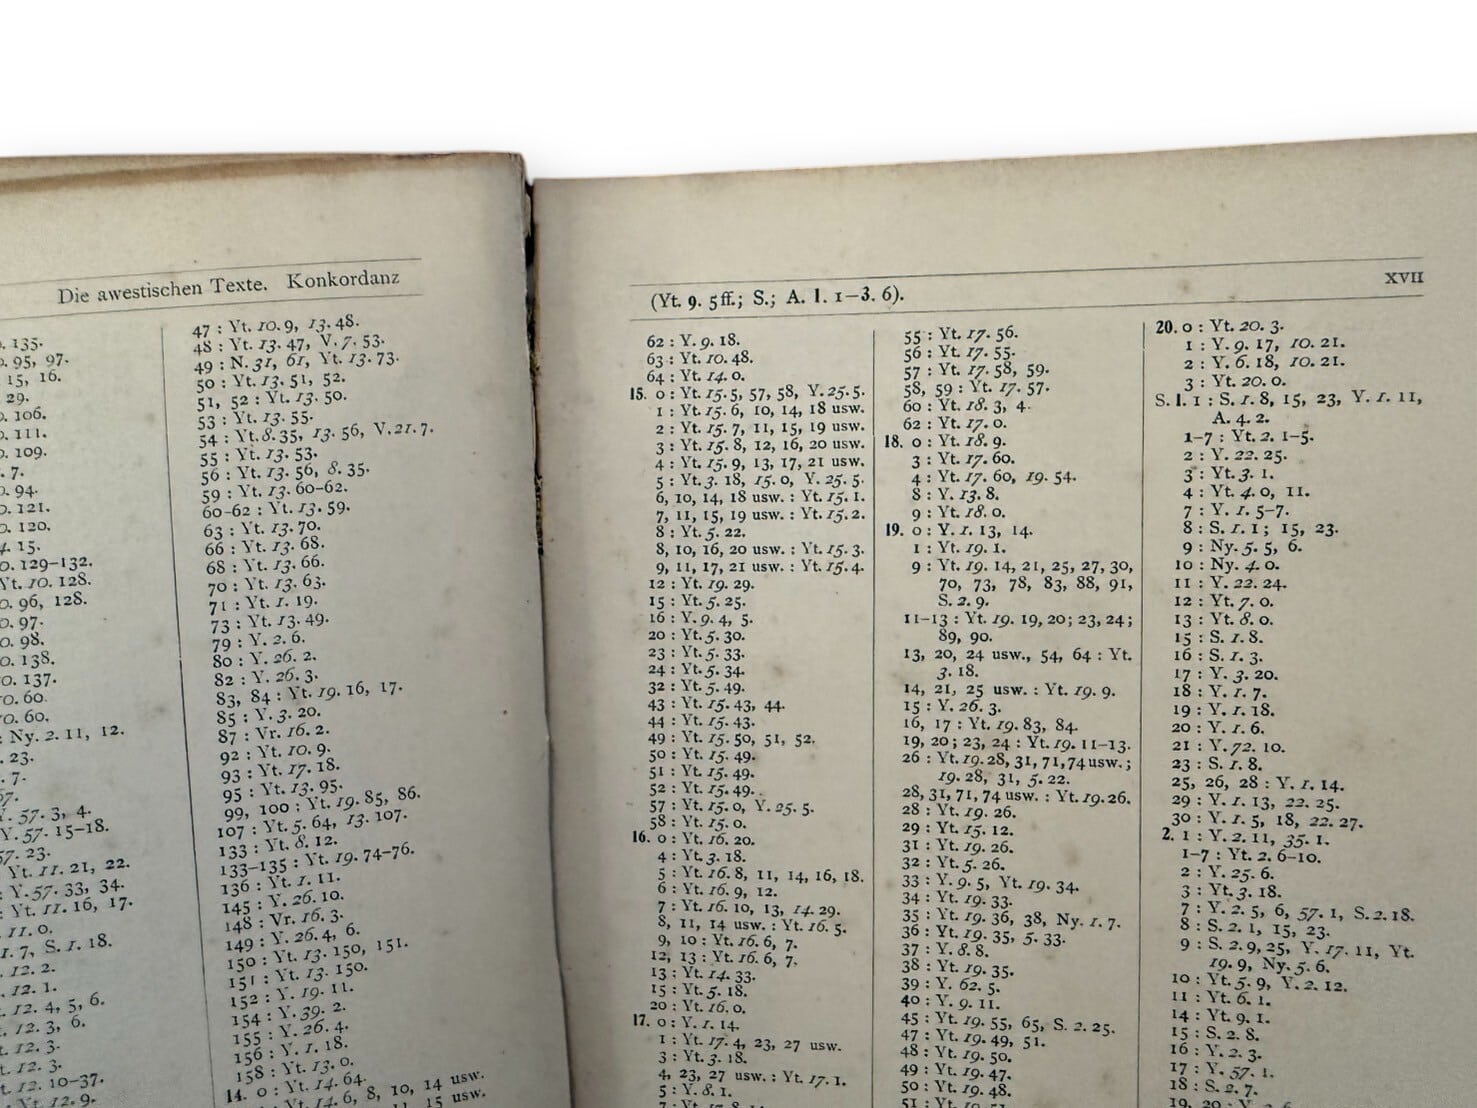 Die awestischen Texte. Konkordanz
135.
95, 97.
15, 16.
29.
106.
111.
109.
7.
94.
121.
120.
15.
129–132.
Yt. 10. 128.
96, 128.
97.
98.
138.
137.
60.
60.
: Ny. 2. 11, 12.
23.
7.
57. 3, 4.
Y. 57. 15–18.
57. 23.
Yt. 11. 21, 22.
: Y. 57. 33, 34.
: Yt. 11. 16, 17.
11. 0.
1. 7, S. 1. 18.
12. 2.
12. 1.
12. 4, 5, 6.
12. 3, 6.
12. 3.
12. 3.
12. 10–37.
Yt. 12. 9.
47 : Yt. 10. 9, 13. 48.
48 : Yt. 13. 47, V. 7. 53.
49 : N. 31, 61, Yt. 13. 73.
50 : Yt. 13. 51, 52.
51, 52 : Yt. 13. 50.
53 : Yt. 13. 55.
54 : Yt. 8. 35, 13. 56, V. 21. 7.
55 : Yt. 13. 53.
56 : Yt. 13. 56, 8. 35.
59 : Yt. 13. 60–62.
60–62 : Yt. 13. 59.
63 : Yt. 13. 70.
66 : Yt. 13. 68.
68 : Yt. 13. 66.
70 : Yt. 13. 63.
71 : Yt. 1. 19.
73 : Yt. 13. 49.
79 : Y. 2. 6.
80 : Y. 26. 2.
82 : Y. 26. 3.
83, 84 : Yt. 19. 16, 17.
85 : Y. 3. 20.
87 : Vr. 16. 2.
92 : Yt. 10. 9.
93 : Yt. 17. 18.
95 : Yt. 13. 95.
99, 100 : Yt. 19. 85, 86.
107 : Yt. 5. 64, 13. 107.
133 : Yt. 8. 12.
133–135 : Yt. 19. 74–76.
136 : Yt. 1. 11.
145 : Y. 26. 10.
148 : Vr. 16. 3.
149 : Y. 26. 4, 6.
150 : Yt. 13. 150, 151.
151 : Yt. 13. 150.
152 : Y. 19. 11.
154 : Y. 39. 2.
155 : Y. 26. 4.
156 : Y. 1. 18.
158 : Yt. 13. 0.
14. 0 : Yt. 14. 64.
Yt. 14. 6, 8, 10, 14 usw.
11, 15 usw.
(Yt. 9. 5 ff.; S.; A. 1. 1–3. 6).
XVII
62 : Y. 9. 18.
63 : Yt. 10. 48.
64 : Yt. 14. 0.
15. 0 : Yt. 15. 5, 57, 58, Y. 25. 5.
1 : Yt. 15. 6, 10, 14, 18 usw.
2 : Yt. 15. 7, 11, 15, 19 usw.
3 : Yt. 15. 8, 12, 16, 20 usw.
4 : Yt. 15. 9, 13, 17, 21 usw.
5 : Yt. 3. 18, 15. 0, Y. 25. 5.
6, 10, 14, 18 usw. : Yt. 15. 1.
7, 11, 15, 19 usw. : Yt. 15. 2.
8 : Yt. 5. 22.
8, 10, 16, 20 usw. : Yt. 15. 3.
9, 11, 17, 21 usw. : Yt. 15. 4.
12 : Yt. 19. 29.
15 : Yt. 5. 25.
16 : Y. 9. 4, 5.
20 : Yt. 5. 30.
23 : Yt. 5. 33.
24 : Yt. 5. 34.
32 : Yt. 5. 49.
43 : Yt. 15. 43, 44.
44 : Yt. 15. 43.
49 : Yt. 15. 50, 51, 52.
50 : Yt. 15. 49.
51 : Yt. 15. 49.
52 : Yt. 15. 49.
57 : Yt. 15. 0, Y. 25. 5.
58 : Yt. 15. 0.
16. 0 : Yt. 16. 20.
4 : Yt. 3. 18.
5 : Yt. 16. 8, 11, 14, 16, 18.
6 : Yt. 16. 9, 12.
7 : Yt. 16. 10, 13, 14. 29.
8, 11, 14 usw. : Yt. 16. 5.
9, 10 : Yt. 16. 6, 7.
12, 13 : Yt. 16. 6, 7.
13 : Yt. 14. 33.
15 : Yt. 5. 18.
20 : Yt. 16. 0.
17. 0 : Y. 1. 14.
1 : Yt. 17. 4, 23, 27 usw.
3 : Yt. 3. 18.
4, 23, 27 usw. : Yt. 17. 1.
5 : Y. 8. 1.
55 : Yt. 17. 56.
56 : Yt. 17. 55.
57 : Yt. 17. 58, 59.
58, 59 : Yt. 17. 57.
60 : Yt. 18. 3, 4.
62 : Yt. 17. 0.
18. 0 : Yt. 18. 9.
3 : Yt. 17. 60.
4 : Yt. 17. 60, 19. 54.
8 : Y. 13. 8.
9 : Yt. 18. 0.
19. 0 : Y. 1. 13, 14.
1 : Yt. 19. 1.
9 : Yt. 19. 14, 21, 25, 27, 30,
70, 73, 78, 83, 88, 91,
S. 2. 9.
11–13 : Yt. 19. 19, 20; 23, 24;
89, 90.
13, 20, 24 usw., 54, 64 : Yt.
3. 18.
14, 21, 25 usw. : Yt. 19. 9.
15 : Y. 26. 3.
16, 17 : Yt. 19. 83, 84.
19, 20; 23, 24 : Yt. 19. 11–13.
26 : Yt. 19. 28, 31, 71, 74 usw.;
19. 28, 31, 5. 22.
28, 31, 71, 74 usw. : Yt. 19. 26.
28 : Yt. 19. 26.
29 : Yt. 15. 12.
31 : Yt. 19. 26.
32 : Yt. 5. 26.
33 : Y. 9. 5, Yt. 19. 34.
34 : Yt. 19. 33.
35 : Yt. 19. 36, 38, Ny. 1. 7.
36 : Yt. 19. 35, 5. 33.
37 : Y. 8. 8.
38 : Yt. 19. 35.
39 : Y. 62. 5.
40 : Y. 9. 11.
45 : Yt. 19. 55, 65, S. 2. 25.
47 : Yt. 19. 49, 51.
48 : Yt. 19. 50.
49 : Yt. 19. 47.
50 : Yt. 19. 48.
51 : Yt. 19. 51.
20. 0 : Yt. 20. 3.
1 : Y. 9. 17, 10. 21.
2 : Y. 6. 18, 10. 21.
3 : Yt. 20. 0.
S. 1. 1 : S. 1. 8, 15, 23, Y. 1. 11,
A. 4. 2.
1–7 : Yt. 2. 1–5.
2 : Y. 22. 25.
3 : Yt. 3. 1.
4 : Yt. 4. 0, 11.
7 : Y. 1. 5–7.
8 : S. 1. 1; 15, 23.
9 : Ny. 5. 5, 6.
10 : Ny. 4. 0.
11 : Y. 22. 24.
12 : Yt. 7. 0.
13 : Yt. 8. 0.
15 : S. 1. 8.
16 : S. 1. 3.
17 : Y. 3. 20.
18 : Y. 1. 7.
19 : Y. 1. 18.
20 : Y. 1. 6.
21 : Y. 72. 10.
23 : S. 1. 8.
25, 26, 28 : Y. 1. 14.
29 : Y. 1. 13, 22. 25.
30 : Y. 1. 5, 18, 22. 27.
2. 1 : Y. 2. 11, 35. 1.
1–7 : Yt. 2. 6–10.
2 : Y. 25. 6.
3 : Yt. 3. 18.
7 : Y. 2. 5, 6, 57. 1, S. 2. 18.
8 : S. 2. 1, 15, 23.
9 : S. 2. 9, 25, Y. 17. 11, Yt.
19. 9, Ny. 5. 6.
10 : Yt. 5. 9, Y. 2. 12.
11 : Yt. 6. 1.
14 : Yt. 9. 1.
15 : S. 2. 8.
16 : Y. 2. 3.
17 : Y. 57. 1.
18 : S. 2. 7.
19, 20 : Y. 2. 6.